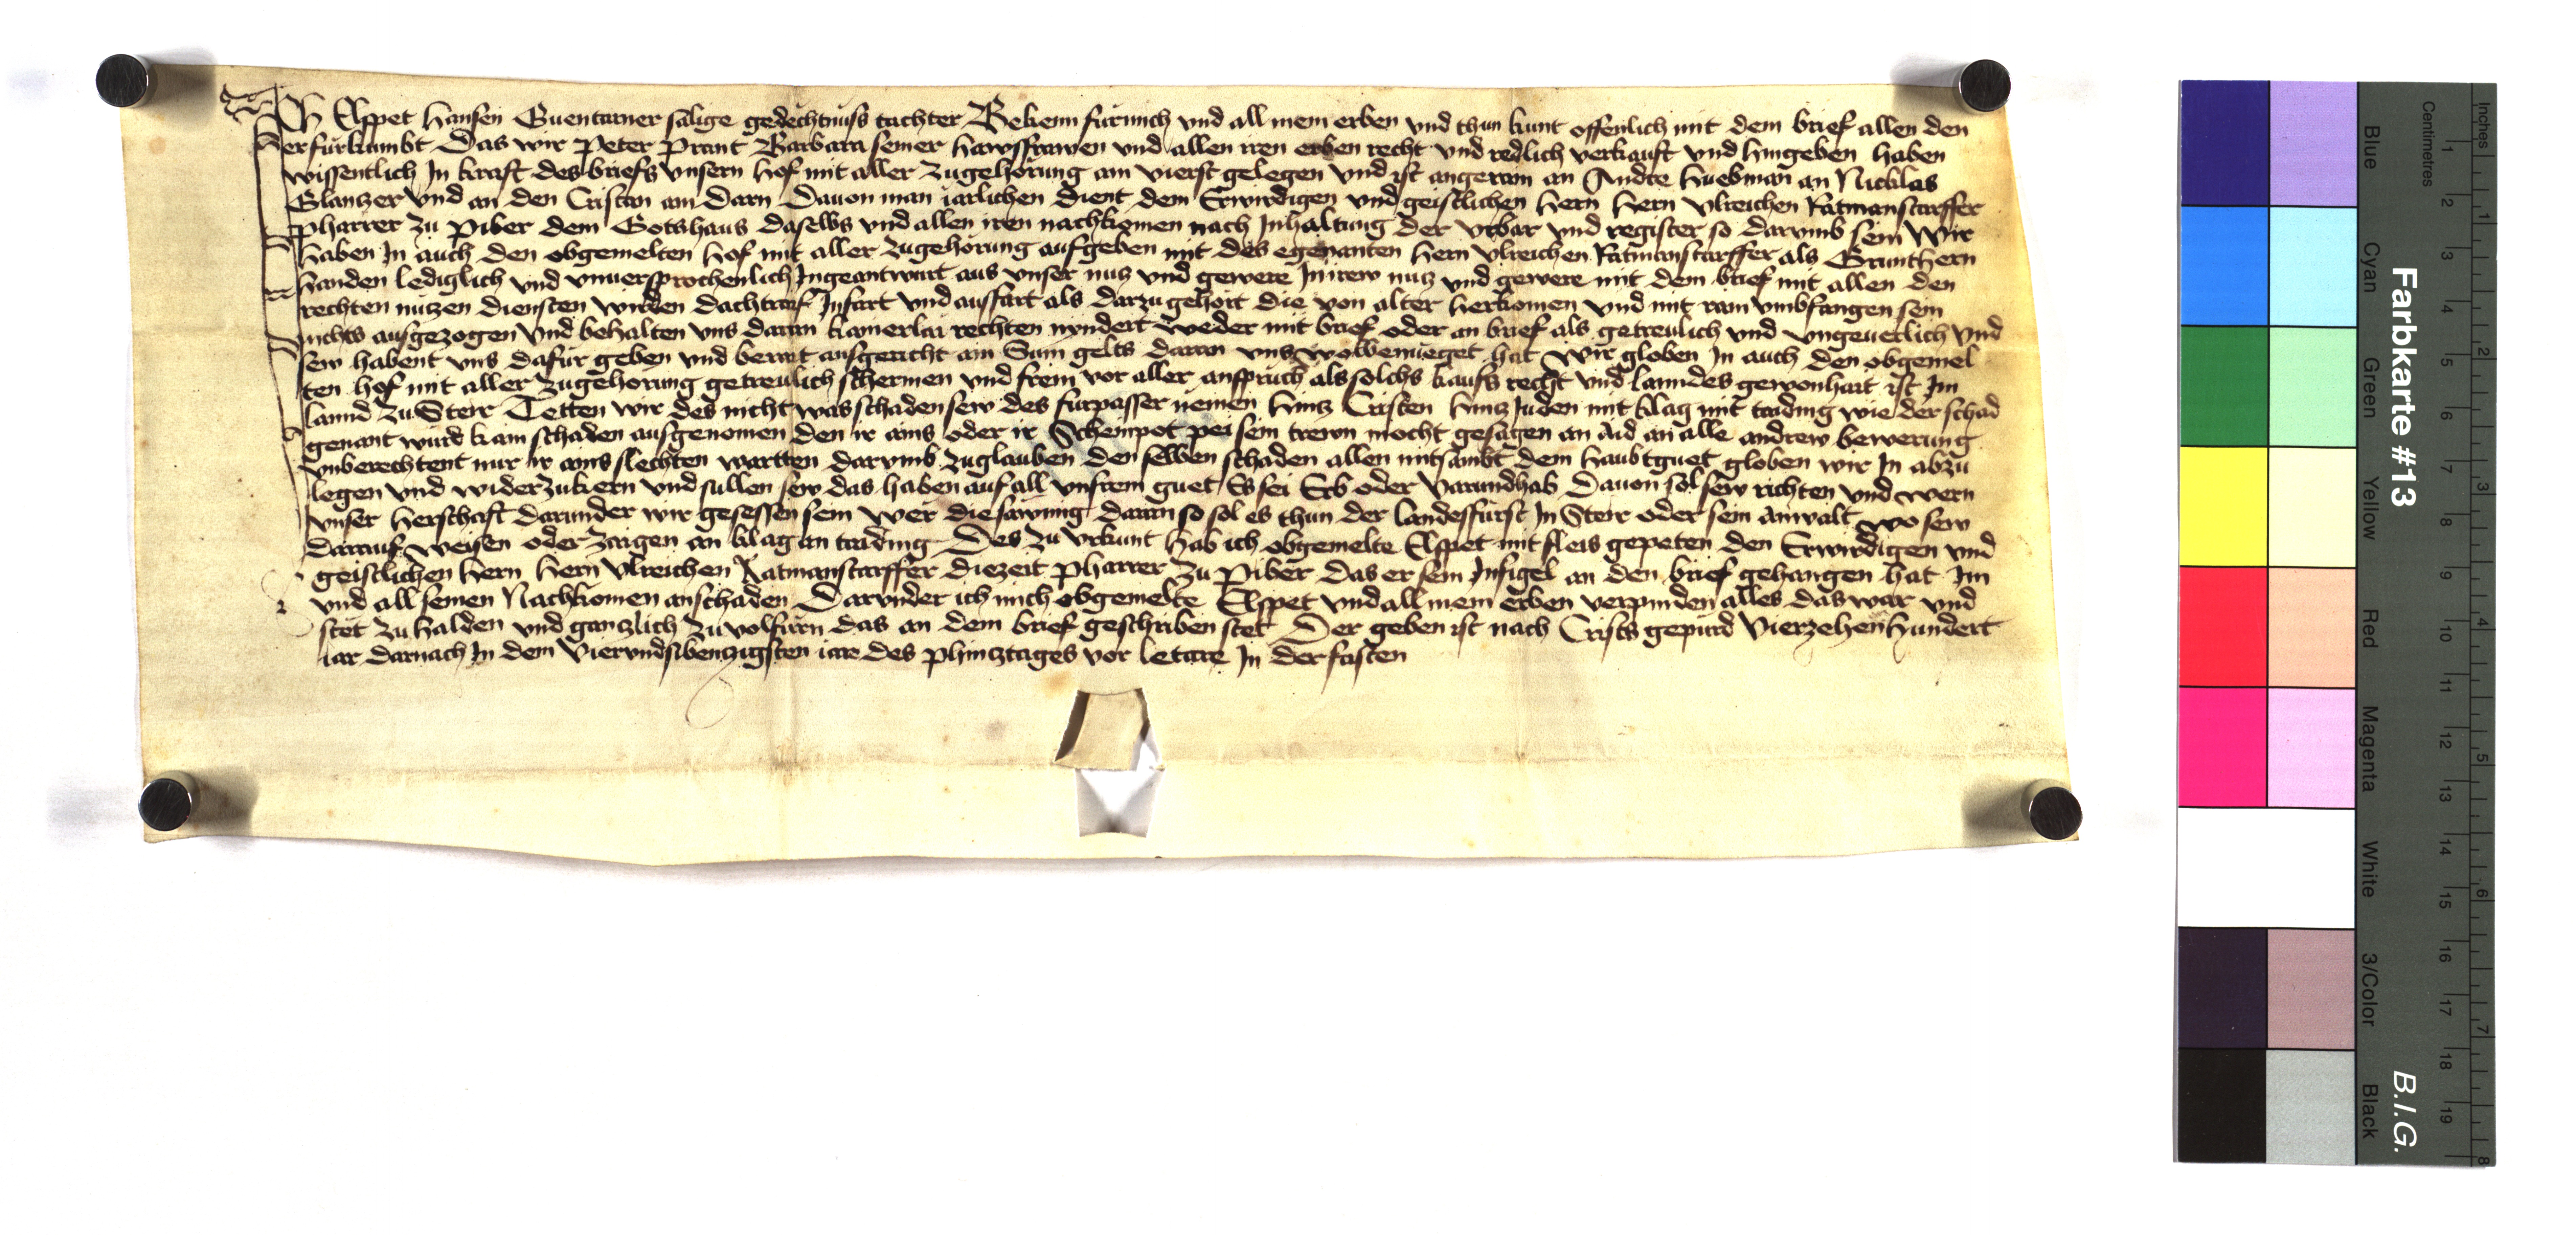 Ich Elspet Hansen Guentarner sälige gedëchtnüss tachter Bekenn für mich vnd all mein erben vnd thun kunt offenlich mit dem brief allen den
er fürkumbt Das wir Peter Prant Barbara seiner hawsfrawen vnd allen iren erben recht vnd redlich verkauft vnd hingeben haben
wissentlich In kraft des briefs vnsern hof mit aller zugehörung am vierst gelegen vnd ist angerain an Andre huebman an Nicklas
Glanczer vnd an den Cristan am Darn Dauon man iärlichen dient dem Erwirdigen vnd geistlichen hern hern vlreichen Ratmanstarffer
pharrer zu Piber dem Gotshaus daselbs vnd allen iren nachkomen nach Inhaltung der vrbar vnd register so darumb sein Wir
haben In auch den obgemelten hof mit aller zugehorung aufgeben mit des egenanten hern vlreichen Ratmanstarffer als Grunthern
handen lediglich vnd vnuersprochenlich Ingeantwurt aus vnser nucz vnd gewere In irew nucz vnd gewere mit dem brief mit allen den
rechten nuczen diensten wirden dachtrauf Infart vnd ausfart als darzu gehört die von alter herkomen vnd mit rain vmbfangen sein
nichts ausgezogen vnd behalten vns daran kainerlai rechten nyndert weder mit brief oder an brief als getreulich vnd vngeuerlich vnd
sew habent vns dafür geben vnd berait ausgericht ain Sum gelts daran vns wolbenueget hat Wir globen In auch den obgemel
ten hof mit aller zugehorung getreulich schermen vnd frein vor aller anspruch als solchs kaufs recht vnd lanndes gewonhait ist Im
lannd zu Steir Tetten wir des nicht was schaden sew des fürpasser nemen hincz Cristen hincz Juden mit klag mit taiding wie der schad
genant wurd kain schaden ausgenomen den ir ains oder ir Scheinpot pei sein trewn mocht gesagen an aid an alle andrew bewerung
vnberechtent nur ir ains slechten wartten darumb zuglauben den selben schaden allen mitsambt dem haubtguet globen wir In abzu
legen vnd widerzukern vnd sullen sew das haben auf all vnsrem guet Es sei Erb oder varundhab Dauon sol sew richten vnd wern
vnser herschaft darunder wir gesessen sein wer die sawmig daran so sol es thun der landesfürst In Steir oder sein anwalt wo sew
darauf weisen oder zaigen an klag an taiding Des zu vrkunt hab ich obgemelte Elspet mit fleis gepeten den Erwirdigen vnd
geistlichen hern hern vlreichen Ratmanstarffer diezeit pharrer zu Piber das er sein Insigel an den brief gehangen hat Im
vnd all seinen Nachkomen anschaden Darunder ich mich obgemelte Elspet vnd all mein erben verpinden alles das war vnd
stët zu halden vnd ganczlich zu volfürn das an dem brief geschriben stet Der geben ist nach Crists gepürd vierzehenhundert
iar darnach In dem vierundsibenczigsten iare des phincztages vor letare In der fasten